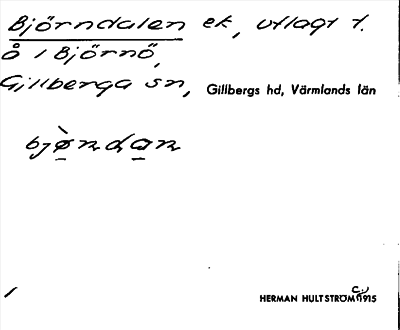 Björndalen ek, utlagt t.
å / Björnö,
Gillberga sn, Gillbergs hd, Värmlands län
bjø̀ndan
/
HERMAN HULTSTRÖM C:a 1915